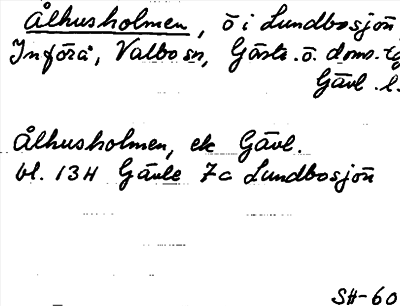 Ålhusholmen, ö i Lundbosjön
Införå, Valbo sn, Gästr. ö. doms. tg
Gävl. l.
Ålhusholmen, ek Gävl.
bl. 13H Gävle 7c Lundbosjön
SH-60